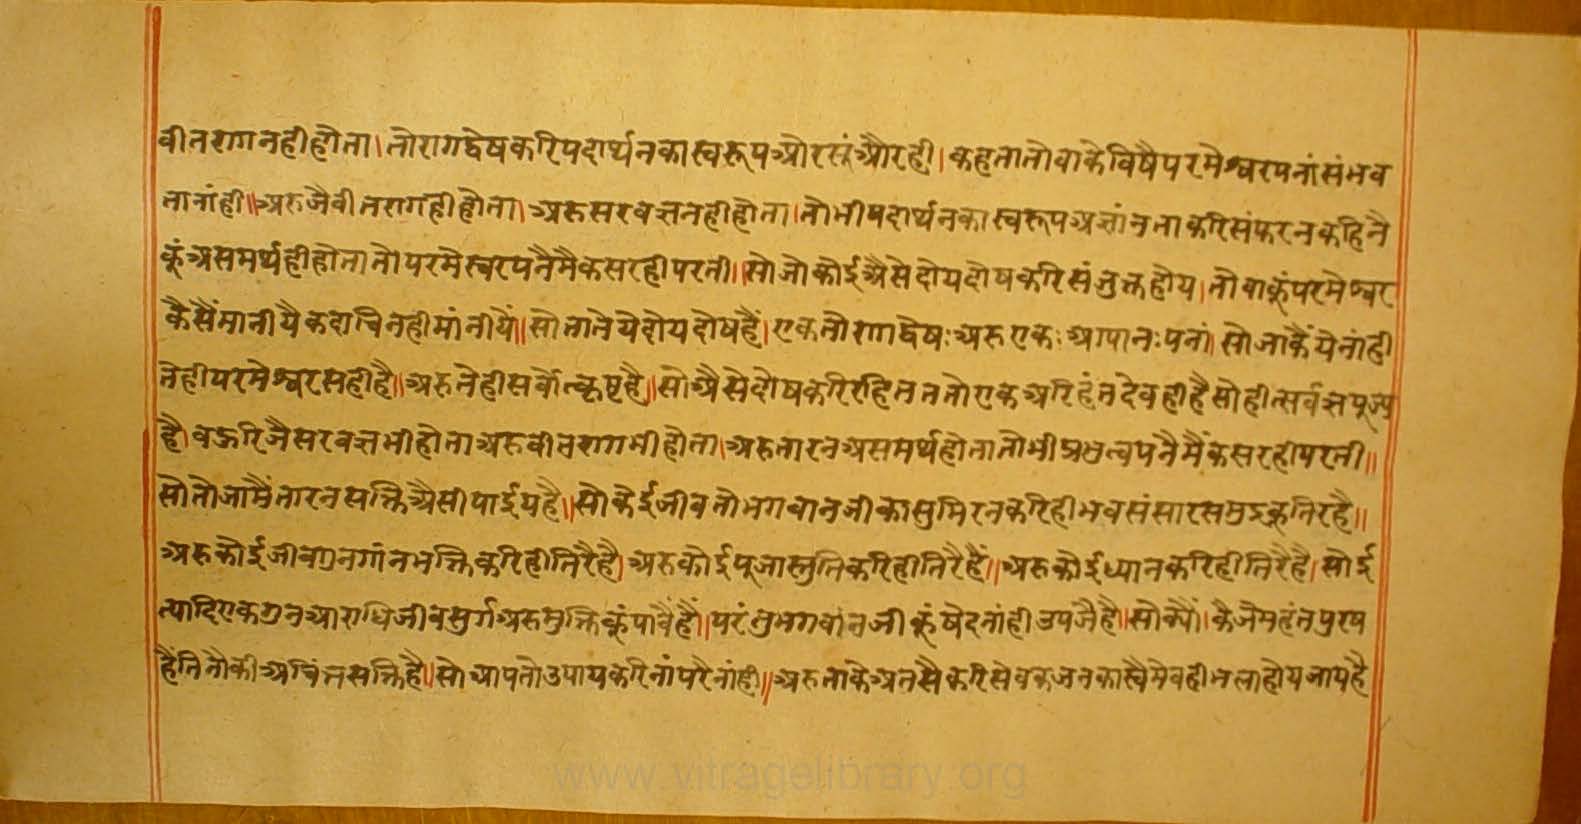 वीतरागनहीहोता।तोरागद्वेषकरिपदार्थनकास्वरूपओरसूंऔरही।कहतातोवाकेविषैपरमेश्वरपनांसंभव
तानांही॥अरुजैवीतरागहीहोता।अरुसरवज्ञनहीहोता।तोभीपदार्थनकास्वरूपअज्ञांनताकरिसंफरनकहिनै
कूंअसमर्थहीहोतातोपरमेस्वरपनैमैकसरहीपरती॥सोजोकोईअैसेदोयदोषकरिसंजुक्तहोय।तोवाकूंपरमेश्वर
कैसैंमानीयैकदाचिनहीमांनीयै॥सोतातेयेदोयदोषहैं।एकतोरागद्वेषःअरुएकःअापानःपनां।सोजाकैंयेनांही
तेहीपरमेश्वरसहीहै॥अरुतेहीसर्वोत्कृष्टहै॥सोअैसेदोषकरिरहितततोएकअरिहंतदेवहीहैसोहीत्सर्वज्ञपूज्य
है।वऊरिजैसरवज्ञभीहोताअरुवीतरागभीहोता।अरुतारनअसमर्थहोतातोभीप्रभुत्वपनैमैंकसरहीपरती॥
सोतोजामैंतारनसक्तिअैसीपाईयहै॥सोकेईजीवतोभगवानजीकासुमिरनकरिहीभवसंसारसमुद्रकूतिरहै॥
अरुकोईजीवगुनगांनभक्तिकरिहीतिरैहै।अरुकोईपूजास्तुतिकरिहीतिरैहैं॥अरुकोईध्यानकरिहीतिरैहै।सोई
त्यादिएकगुनआराधिजीवसुर्गअरुमुक्तिकूंपावैंहैं॥परंतुभगवांनजीकूंषेदनांहीउपजैहै॥सोक्यौं।कैजेमहंतपुरष
हैंतितौकीअचिंतसक्तिहै॥सोआपतोउपायकरिनांपरैनांही॥अरुताकेअतसैकरिसेवकजनकास्वैमेवहीभलाहोयजायहै
www.vitragelibrary.org